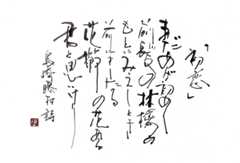 「初恋」
まだあげ初めし
前髪の林檎の
もとに見えしとき
前にさしたる
花櫛の花ある
君と思ひけり
島崎藤村詩